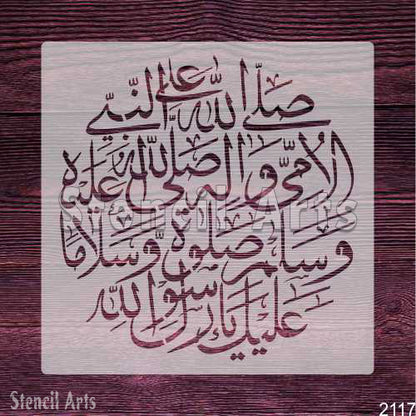 صَلَّى اللّٰهُ عَلَى النَّبِيِّ
الْأُمِّيِّ وَآلِهِ صَلَّى اللّٰهُ عَلَيْهِ
وَسَلَّمَ صَلٰوةً وَّسَلَامًا
عَلَيْكَ يَا رَسُولَ اللّٰهِ
Stencil Arts
Stencil Arts
2117